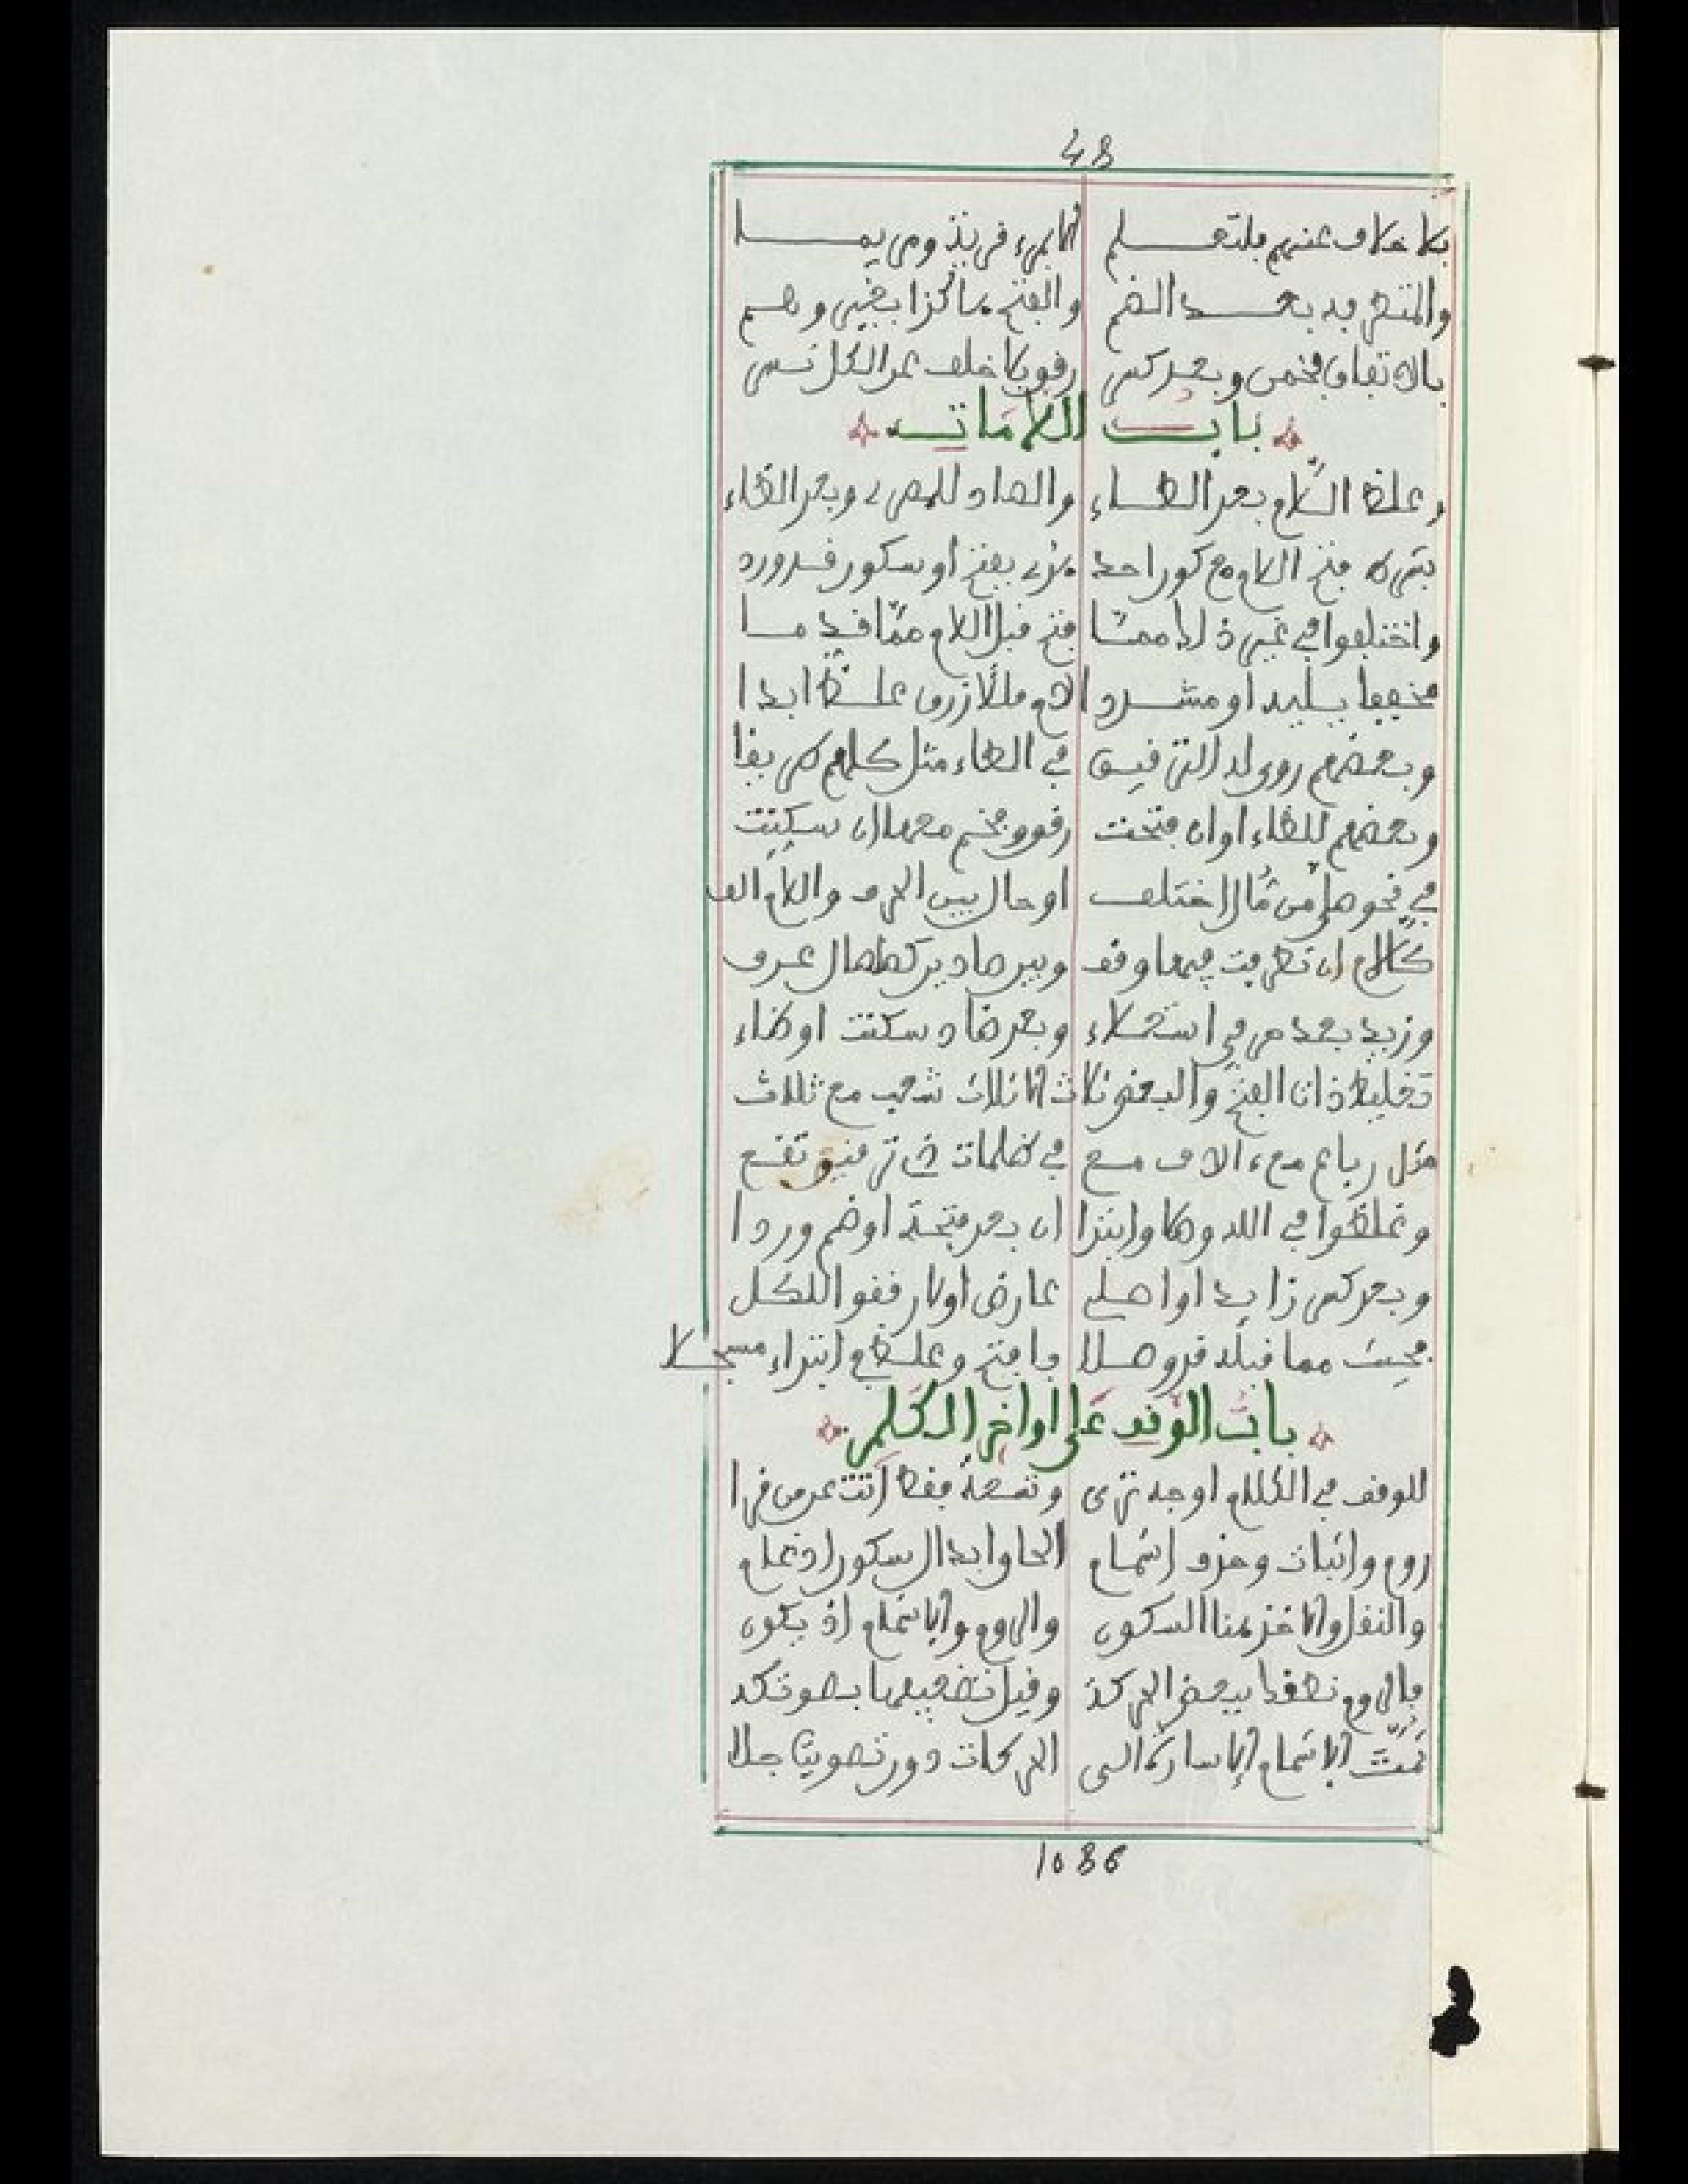 48
بلا خلاف عنهم فلتعلم الامرء قرية ومريما
والمتطرفه بعد الضم والفتح ما كذا بغير وهم
بالاتفاق فخمن وبعد كسر رقق بلا خلف عن الكل تسر
باب اللامات
وغلظ اللام بعد الطاء والصاد للمصري وبعد الظاء
بشرط فتح اللام مع كون احد هذي بفتح او سكون قد ورد
واختلفوا في غير ذا ك مما فتح قبل اللام مما قدما
مخففا يليه او مشددا لام فللازرق غلظا ابدا
وبعضهم روى له الترقيق في الطاء مثل طلهم
وبعضهم للظاء او ان فتحت رقق وفخم معها ان سكنت
في نحو صلى من ممال اختلف او حال بين الحرف واللام الف
كاللام ان تطرفت فيها وقف وبين صادين كصلصال عرف
وزيد بعد حرفي استعلاء وبعد ضاد سكنت او ظاء
تغليظ ذات الفتح والبعض ثلاث الا ثلاث شعب مع ثلاث
مثل رباع مع الاف مع في ظلمات
وغلظوا في الله وصلا وابتدا ان بعد فتحة او ضم وردا
وبعد كسر زايد او اصلي عارض اولا رققوا للكل
بحيث مما قبله قد وصلا فافتح وغلظ في ابتداء مسجلا
باب الوقف على اواخر الكلم
للوقف في الكلام اوجه ترى وتسعة فقط اتت عن من قرا
روم واثبات وحذف اشمام الحاق ابدال سكون ادغام
والنقل والاخذ هنا السكون والروم والاشمام اذ يكون
فالروم نطقك ببعض الحركة وقيل تضعيفها بصوتك
تمت الاشمام الاشارة الى الحركات دون تصويت جلا
1086